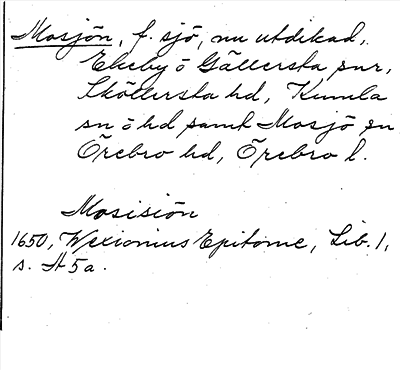 Mosjön, f. sjö, nu utdikad,
Ekeby o Gällersta snr,
Sköllersta hd, Kumla
sn o hd samt Mosjö sn
Örebro hd, Örebro l.
Mosisiön
1650, Wexionius Epitome, Lib. 1,
s. A 5a.